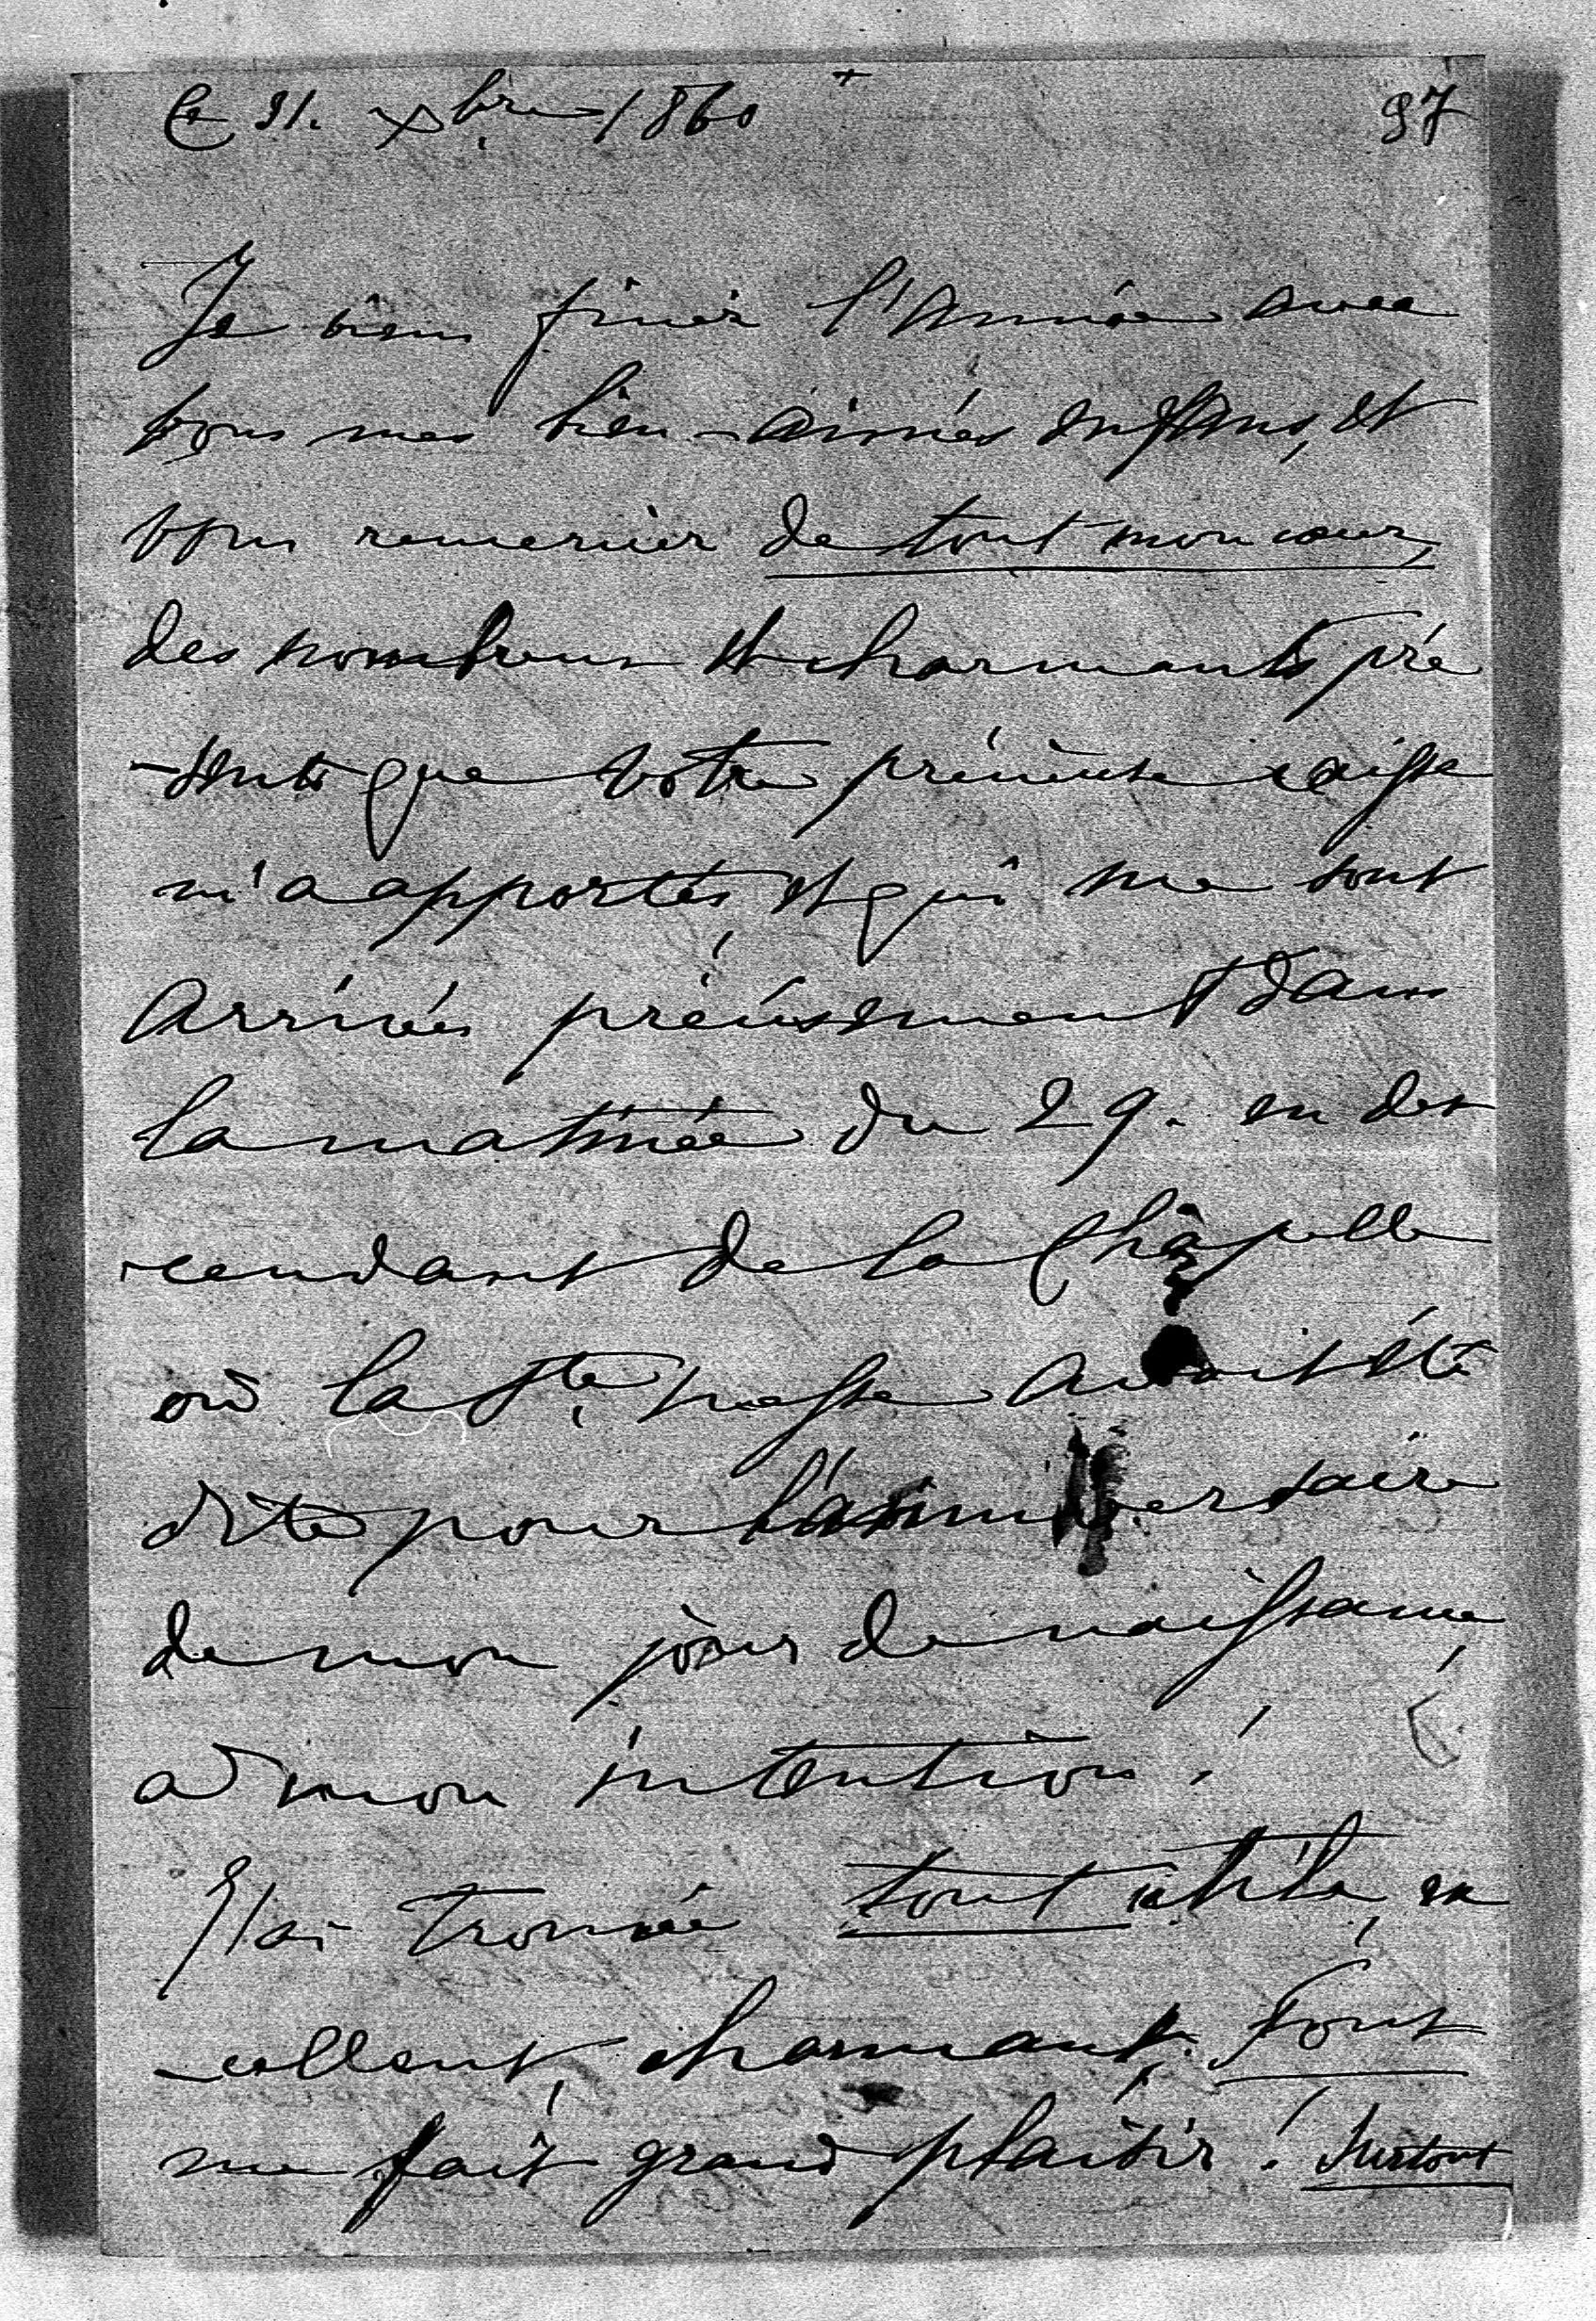 Ce 31. Xbre 1860 +
97
Je viens finir l'Année avec
vous mes bien-aimés enfans, et
vous remercier de tout mon cœur,
des nombreux et charmants pré
-sents que votre précieuse caisse
m'a apportés et qui me sont
arrivés précisement dans
la matinée du 29. en des
cendant de la Chapelle
où la Ste Messe avait été
dite pour l'anniversaire
de mon jour de naissance,
a mon intention!
J'ai trouvé tout utile, ex
-cellent, charmant. Tout
me fait grand plaisir! Surtout